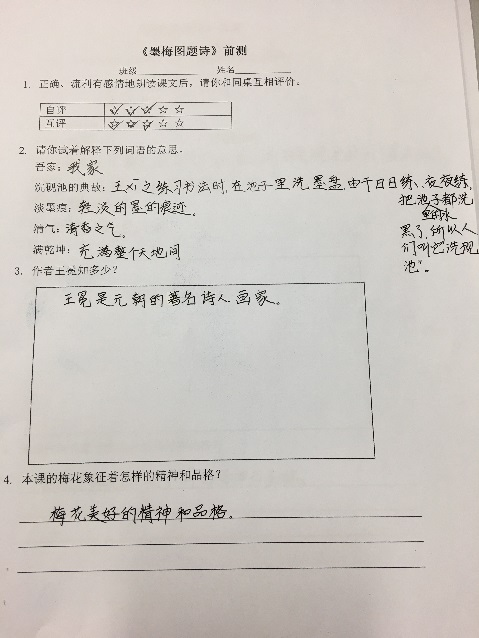 《墨梅图题诗》前测
班级________ 姓名________
1. 正确、流利有感情地朗读课文后，请你和同桌互相评价：
自评 ☆☆☆☆☆
互评 ☆☆☆☆☆
2. 请你试着解释下列词语的意思。
吾家：我家
洗砚池的典故：王羲之练习书法时,在池子里洗墨盘,由于日日练、夜夜练,
把池子都洗
的水
黑了,所以人
们叫它"洗砚
池"。
淡墨痕：轻淡的墨的痕迹。
清气：清香之气。
满乾坤：充满整个天地间
3. 作者王冕知多少？
王冕是元朝的著名诗人画家。
4. 本课的梅花象征着怎样的精神和品格？
梅花美好的精神和品格。